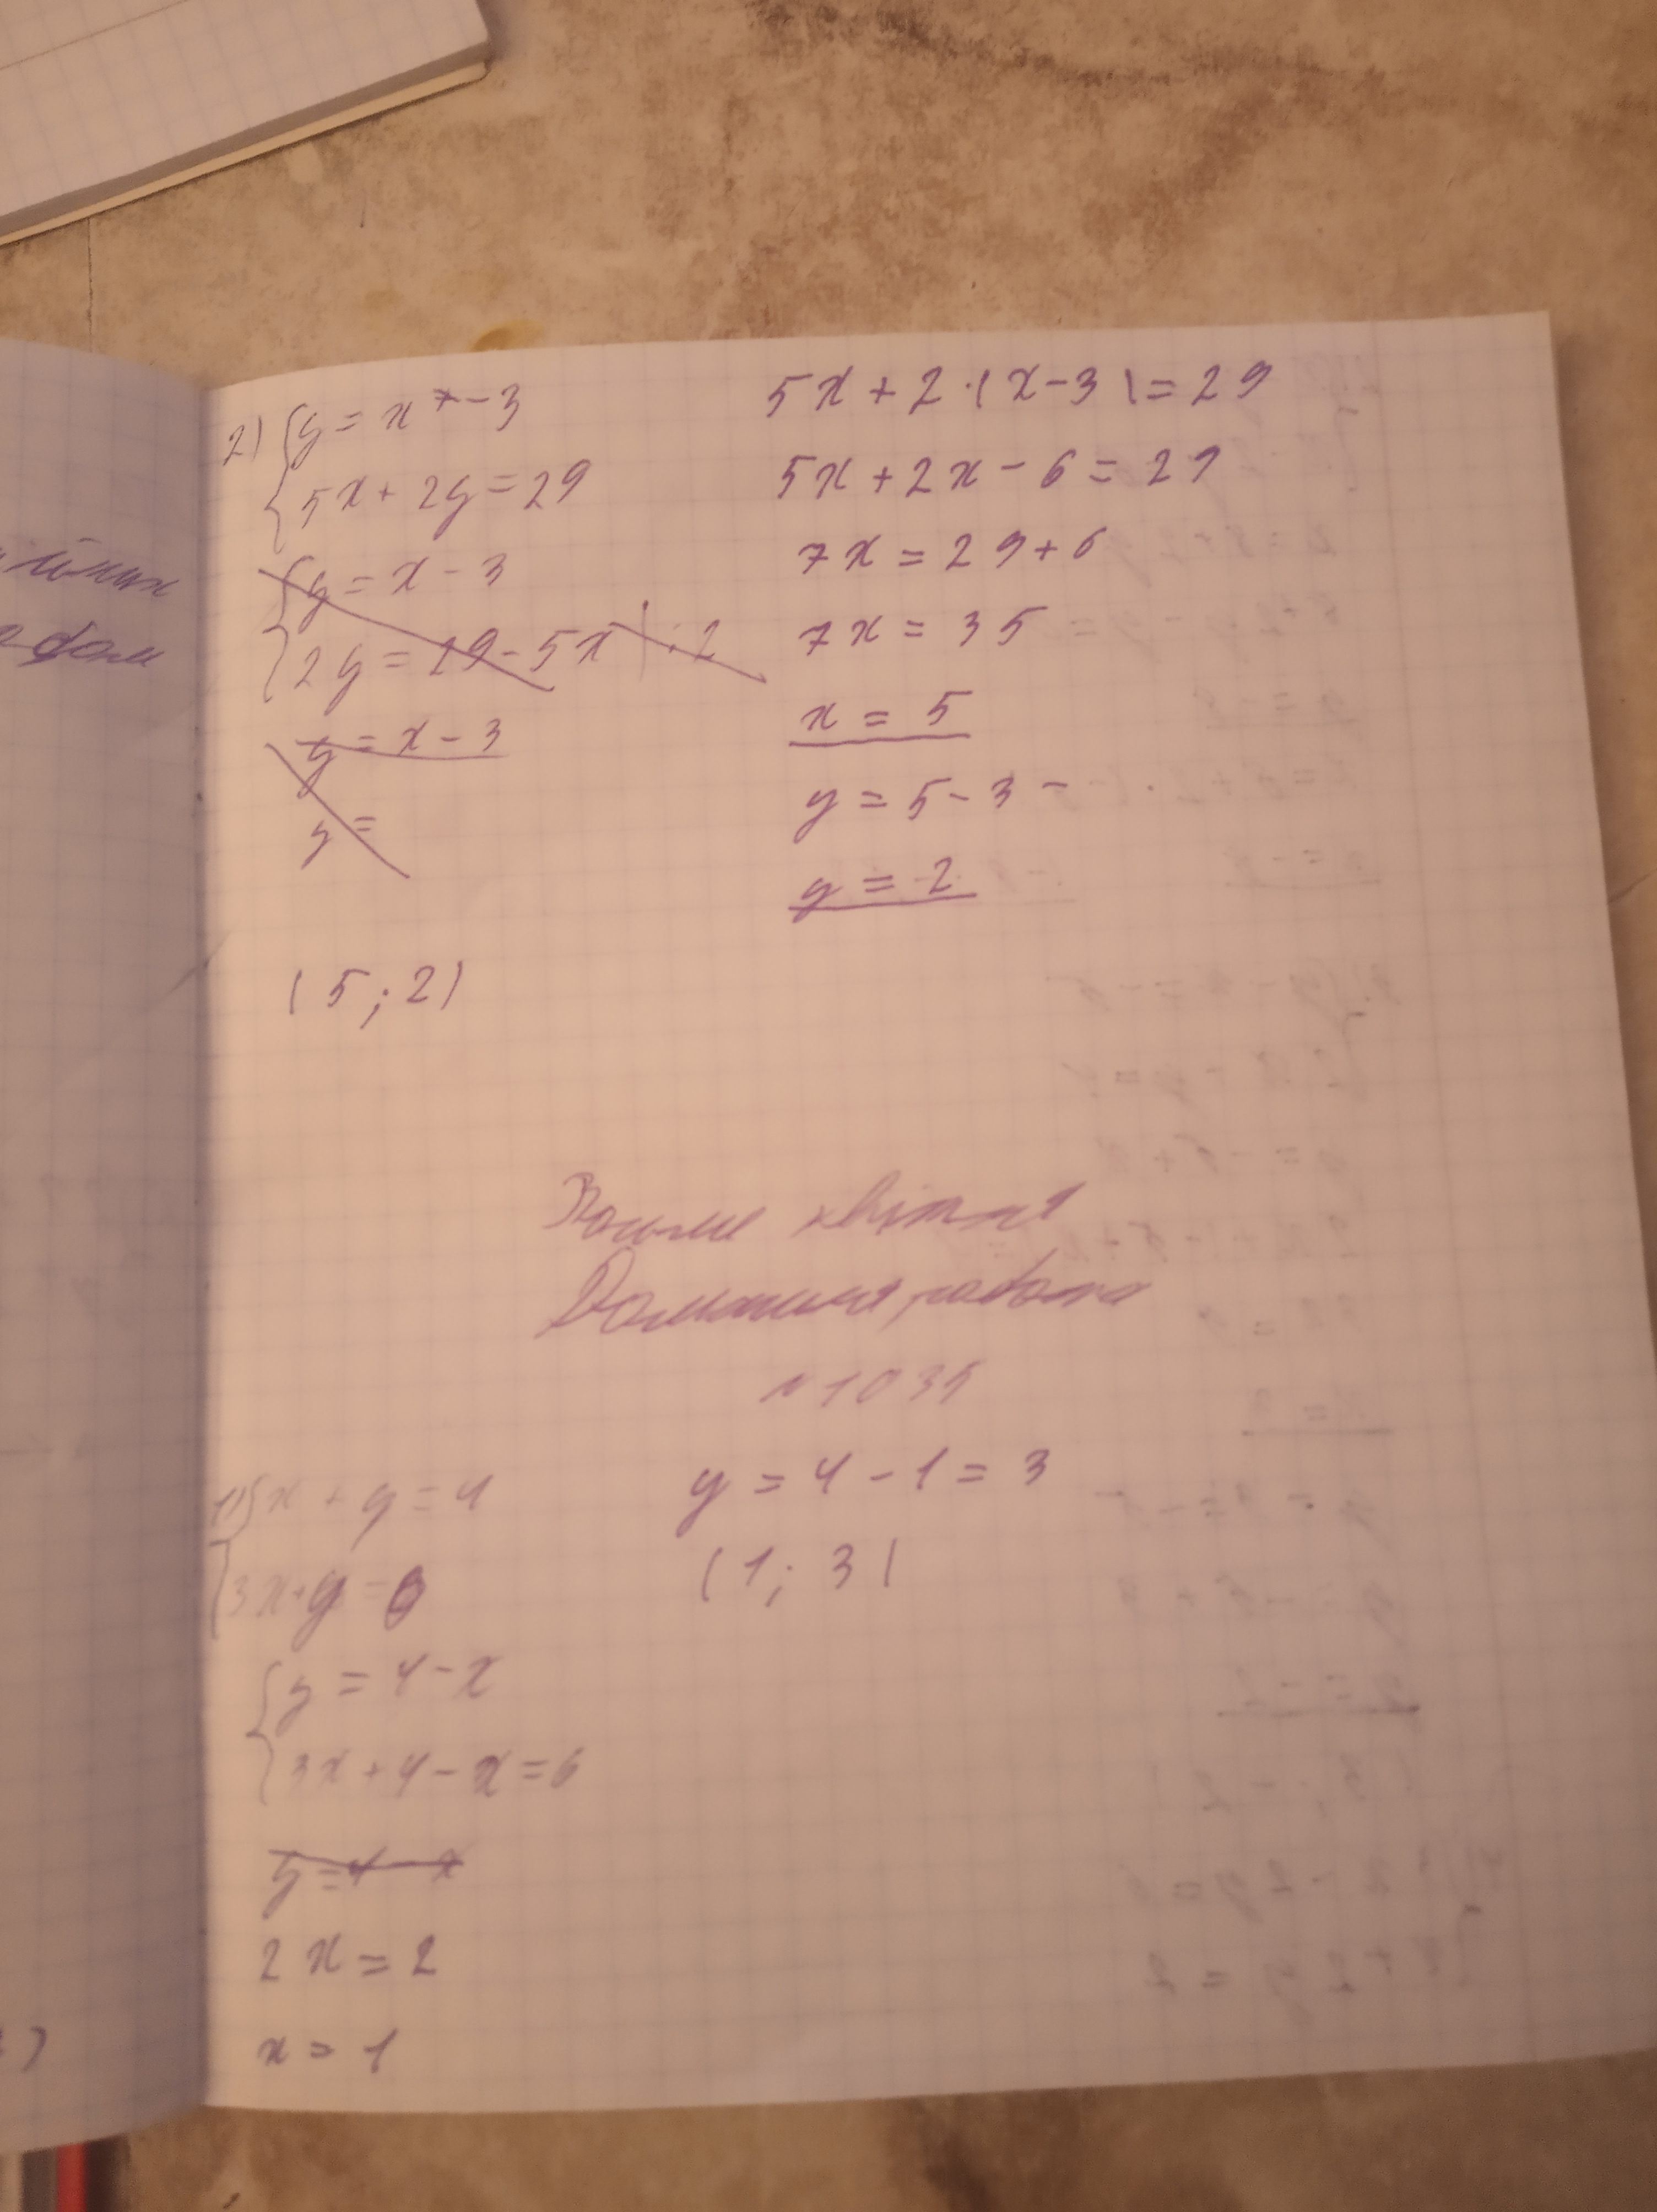 2) { y = x - 3
5x + 2y = 29
{ y = x - 3
2y = 29 - 5x | : 2
y = x - 3
y =
(5; 2)
5x + 2 · (x - 3) = 29
5x + 2x - 6 = 29
7x = 29 + 6
7x = 35
x = 5
y = 5 - 3 -
y = 2
Восьме квітня
Домашня робота
№1035
1) { x + y = 4
3x + y = 6
{ y = 4 - x
3x + 4 - x = 6
y = 4 - x
2x = 2
x = 1
y = 4 - 1 = 3
(1; 3)